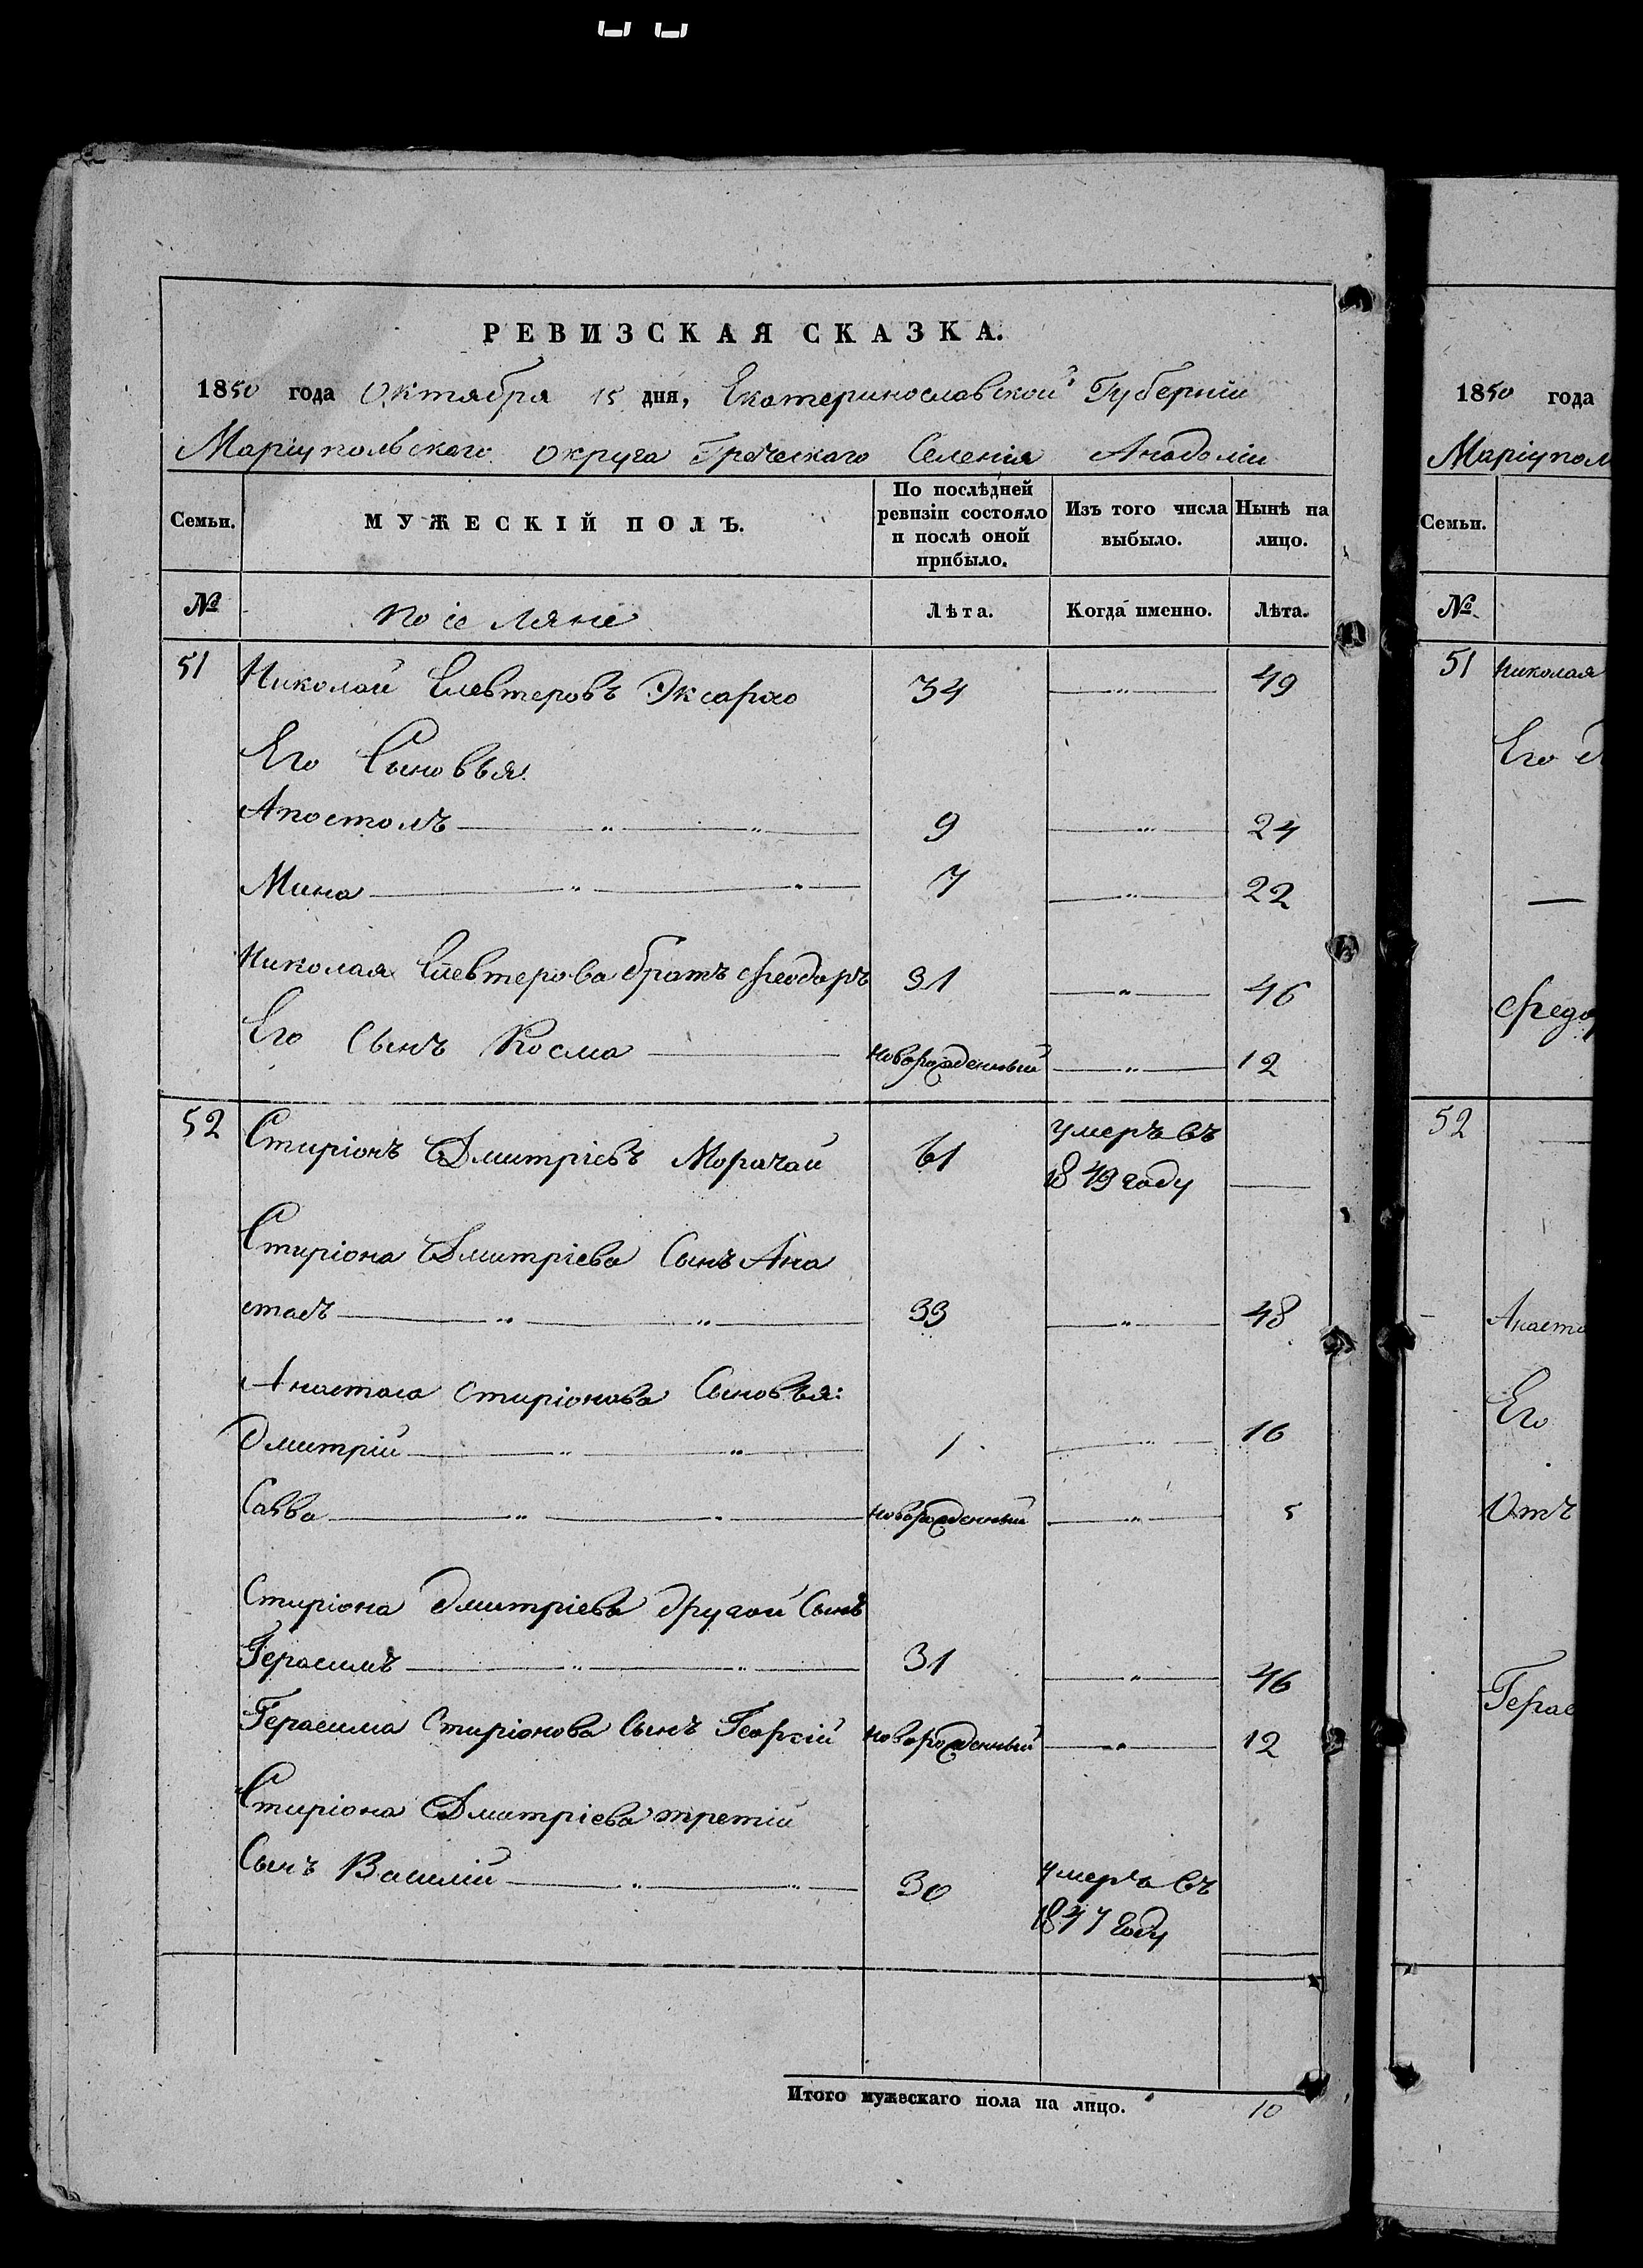 РЕВИЗСКАЯ СКАЗКА.
1850 года Октября 15 дня, Екатеринославской Губерніи
Маріупольскаго округа Греческаго Селенія Анадоліи
Семьи.
МУЖЕСКІЙ ПОЛЪ.
По послѣдней
ревизіи состояло
и послѣ оной
прибыло.
Изъ того числа
выбыло.
Нынѣ на
лицо.
№
поселяне
Лѣта.
Когда именно.
Лѣта.
51 Николай Елевтеровъ Эксархо 34 —〃— 49
Его Сыновья
Апостолъ —〃—〃— 9 —〃— 24
Мина —〃—〃— 7 —〃— 22
Николая Елевтерова братъ Феодоръ 31 —〃— 46
Его Сынъ Косма — новорожденный —〃— 12
52 Стиріонъ Дмитріевъ Морачай 61 умеръ въ
1849 году —
Стиріона Дмитріева Сынъ Ана
стасъ —〃—〃— 33 —〃— 48
Анастаса Стиріонова Сыновья:
Дмитрій —〃—〃— 1 —〃— 16
Савва —〃—〃— новорожденный —〃— 5
Стиріона Дмитріева другой Сынъ
Герасимъ —〃—〃— 31 —〃— 46
Герасима Стиріонова Сынъ Георгій новорожденный —〃— 12
Стиріона Дмитріева третій
Сынъ Василій —〃—〃— 30 умеръ въ
1847 году —
Итого мужескаго пола на лицо. 10
1850 года
Маріупол
Семьи.
№
51 Николая
Его
—
Федо
52 —
Анаста
Его
Отъ
Герас